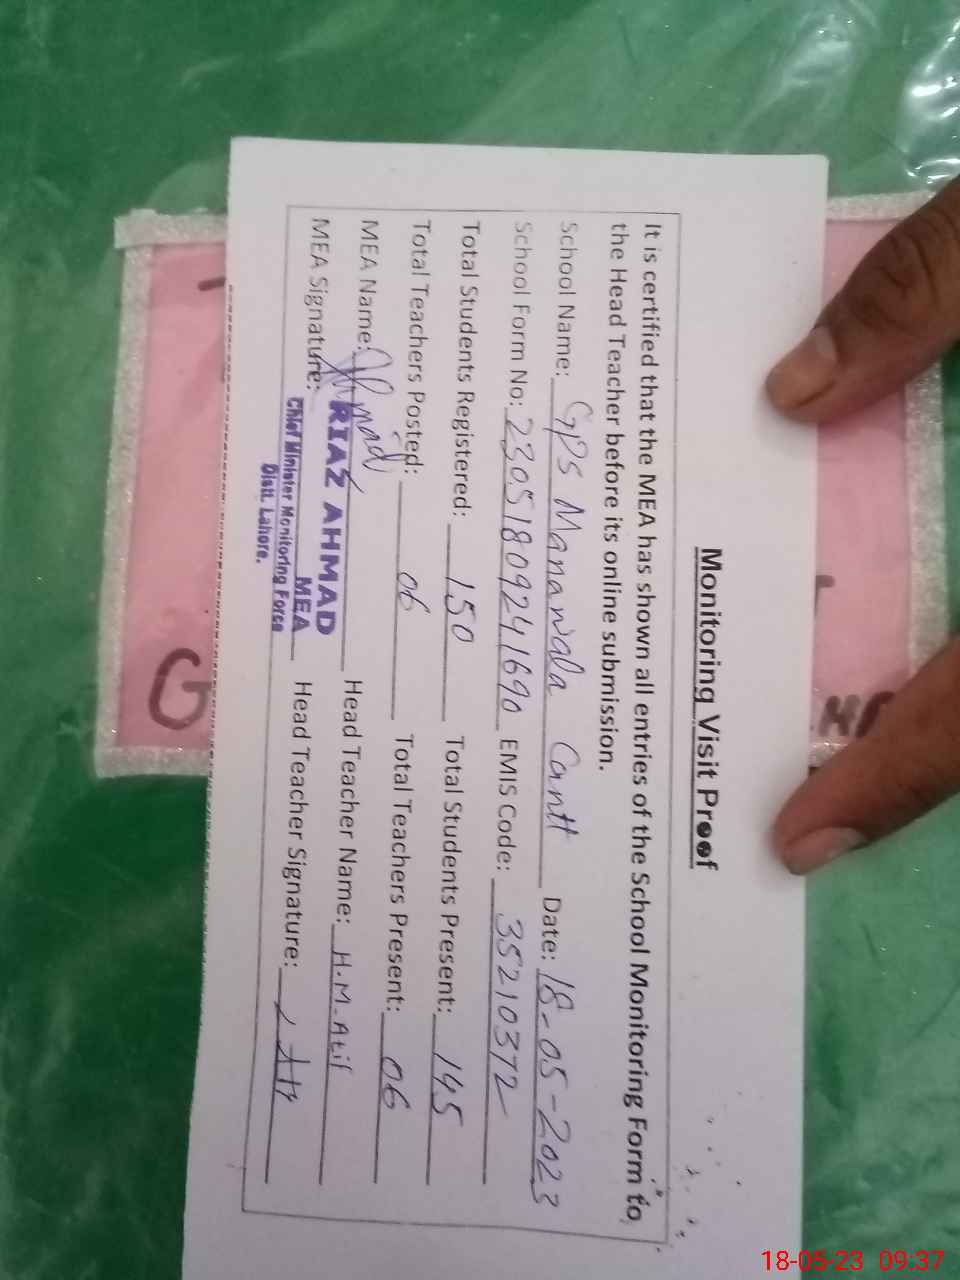 Monitoring Visit Proof
It is certified that the MEA has shown all entries of the School Monitoring Form to
the Head Teacher before its online submission.
School Name: GPS Mananwala Cantt Date: 18-05-2023
School Form No: 23051809241690 EMIS Code: 35210372
Total Students Registered: 150 Total Students Present: 145
Total Teachers Posted: 06 Total Teachers Present: 06
MEA Name: Head Teacher Name: H.M.Atif
MEA Signature: Ahmad Head Teacher Signature:
RIAZ AHMAD
MEA
Chief Minister Monitoring Force
Distt. Lahore.
G
18-05-23 09:37